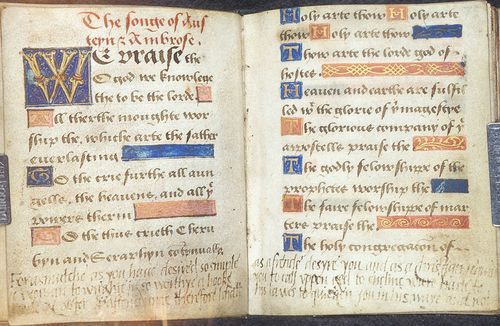 The songe of Aus
teyn & Ambrose.
WE praise the
O god we knowlege
the to be the lorde.
All therthe moughte wor
ship the, whiche arte the father
everlasting
To the crie furthe all aun
gells, the heavens, and all yͤ
powers therin
To the thus crieth Cheru
byn and Seraphyn contynually,
For asmutche as you have desired so simple
a woman to
Holy arte thow Holy arte
thow Holy arte thow
Thow arte the lorde god of
hostes
Heaven and earthe are fulfil
led wͭ the glorie of yͥ magestye
The glorious company of yͤ
appostells praise the
The godly felowshippe of the
prophetes worship the
The faire felowshippe of mar
ters praise the
The holy congregacion of
as a frende desyre you and as a
you to call upon god to
his lawes to